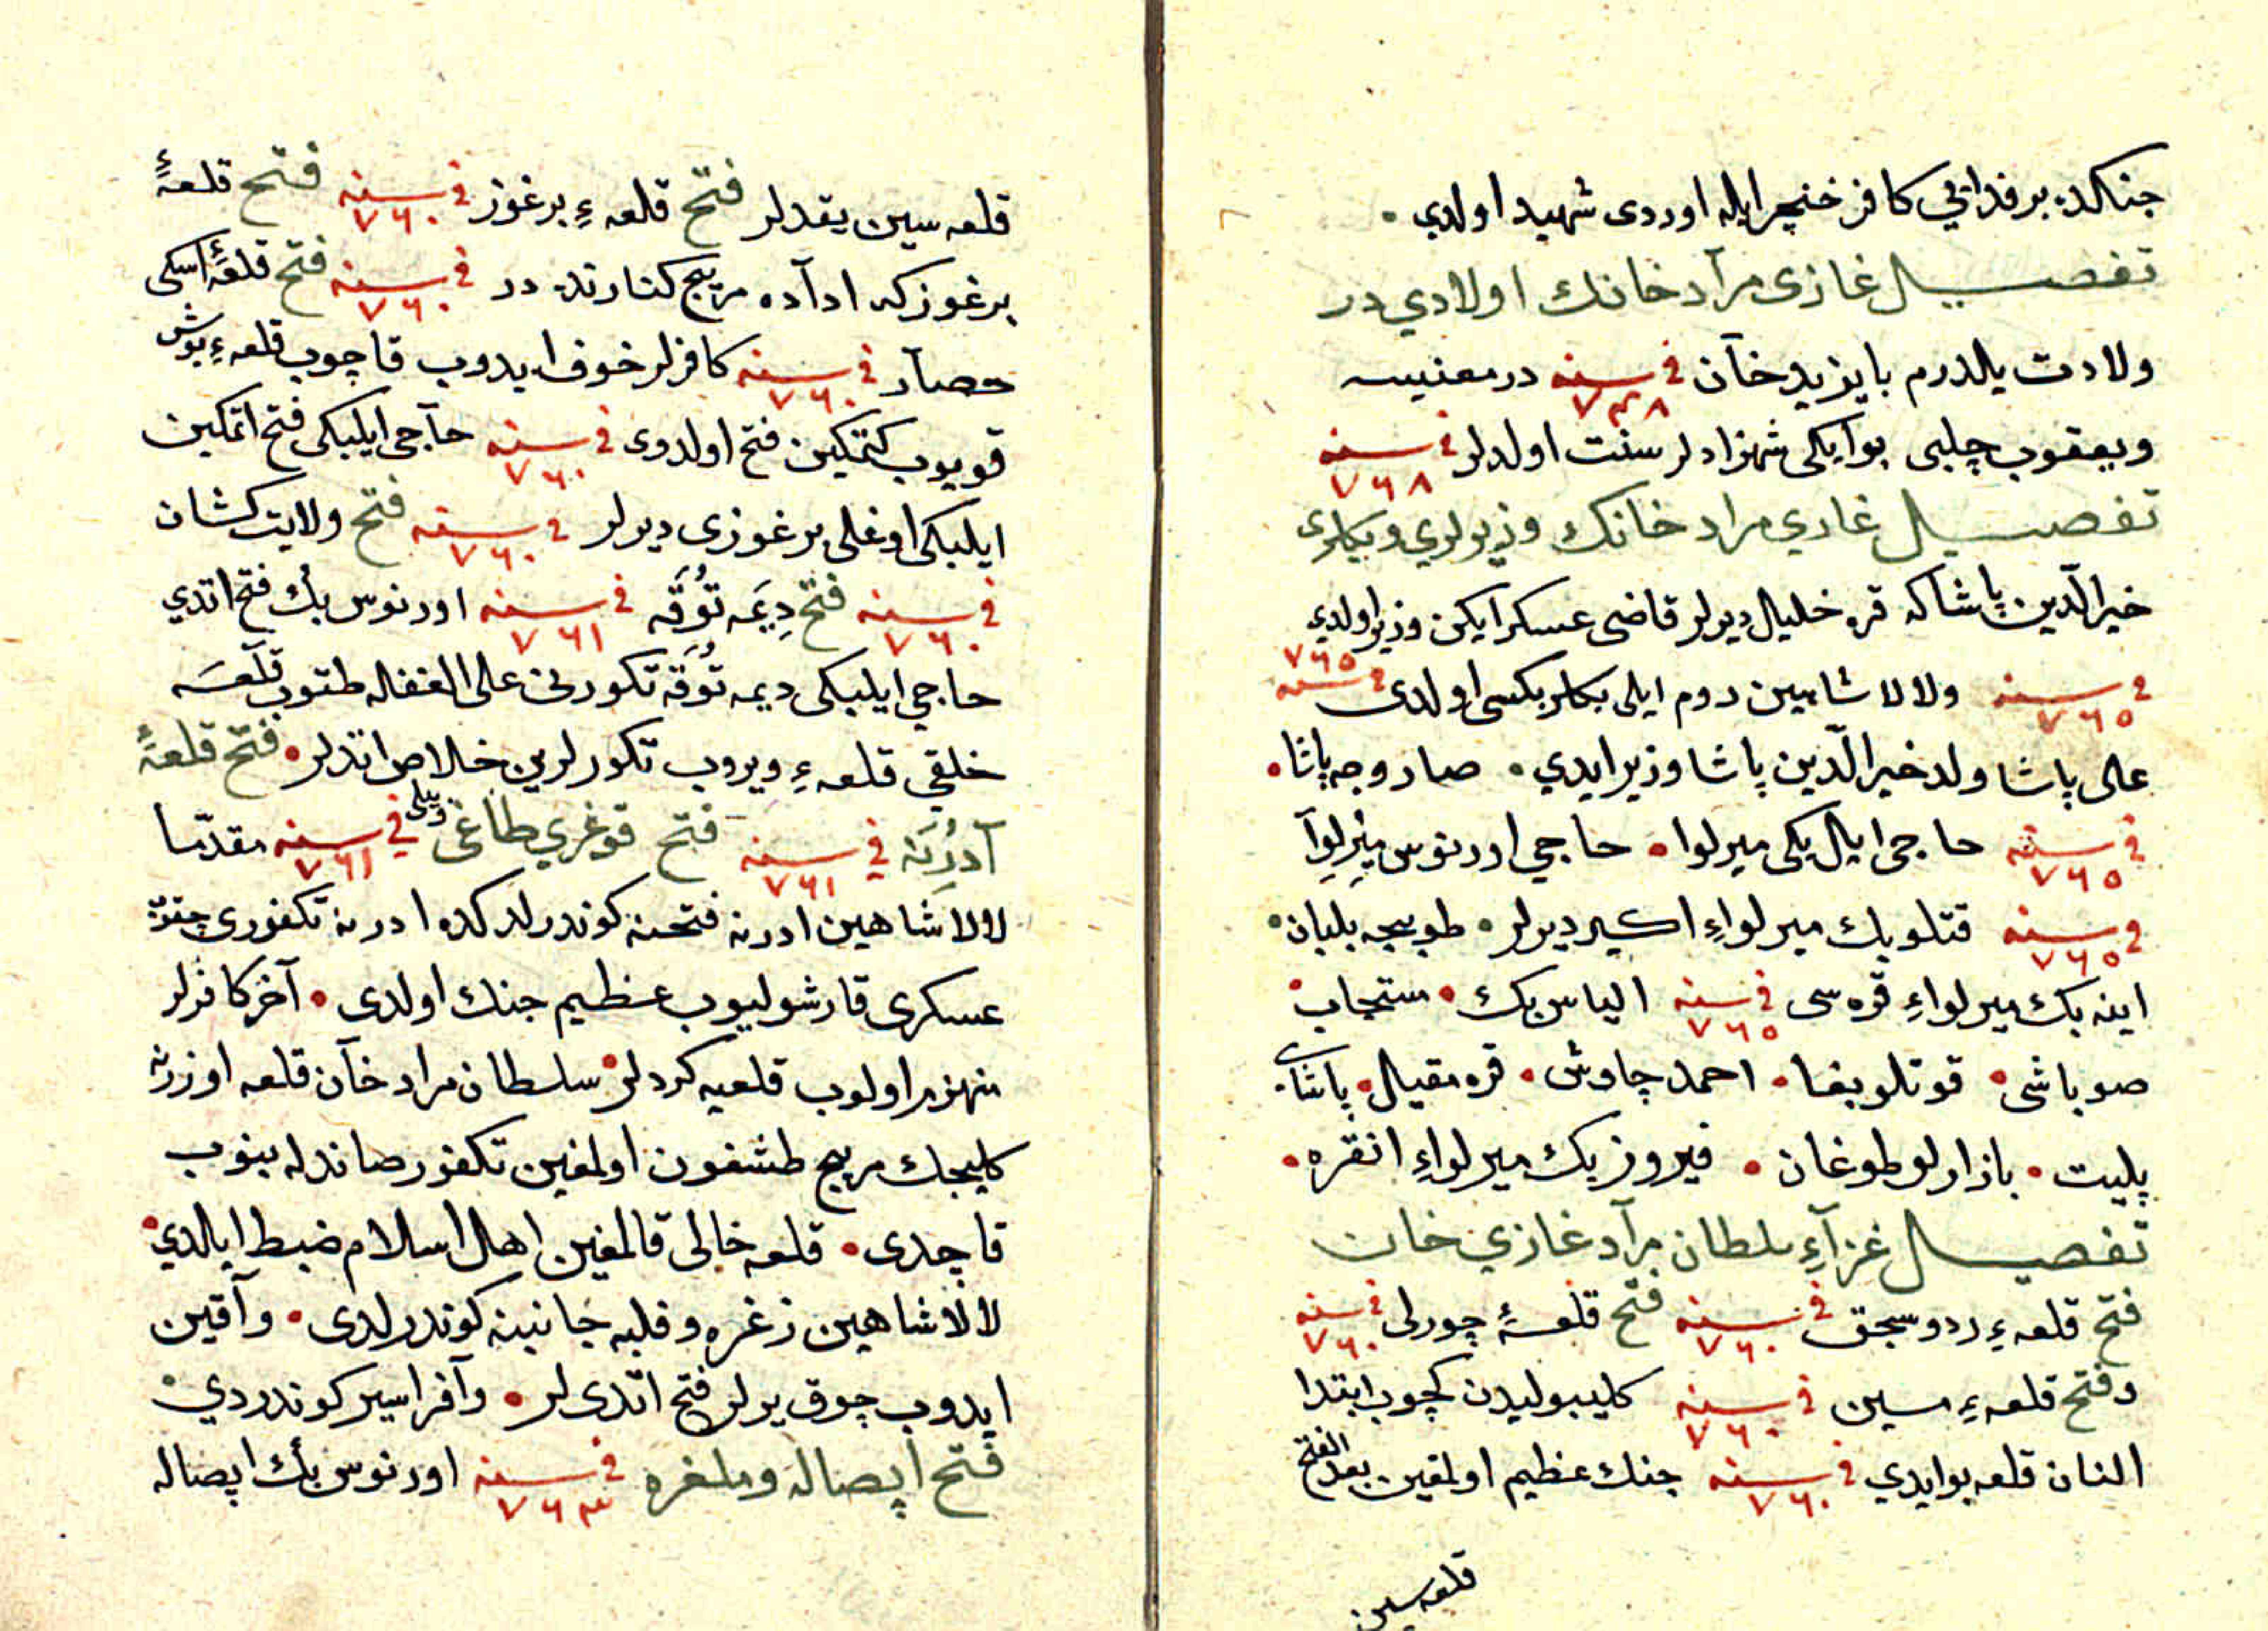 جنكده بر فدائي كافر خنجر ايله اوردى شهيد اولدي
تفصيل غازى مرآد خانك اولادي در
ولادت يلدرم بايزيد خآن في سنه ٧٤٨ در مغنيسه
ويعقوب چلبى بو ايكى شهزادلر سنت اولدلر في سنه ٧٦٨
تفصيل غازي مراد خانك وزيرلري وبكلرى
خير الدّين پاشا كه قره خليل ديرلر قاضى عسكر ايكن وزير اولدي
في سنه ٧٦٥ ولالا شاهين روم ايلى بكلربكسى اولدى في سنه ٧٦٥
على پاشا ولد خير الدّين پاشا وزير ايدي • صاروجه پاشا •
في سنه ٧٦٥ حاجى ايل بكى ميرلوا • حاجي اورنوس ميرلوآ
في سنه ٧٦٥ قتلو بك ميرلواءِ اكير ديرلر • طوبيجه بلبان •
اينه بك ميرلواءِ قره سى في سنه ٧٦٥ الياس بك • مستجاب •
صوباشى • قوتلوبغا • احمد چاوش • قره مقبل • پاشا
پليت • بازارلو طوغان • فيروز بك ميرلواءِ انقره •
تفصيل غزآءِ سلطان مرآد غازي خان
فتح قلعهءِ ردوسجق في سنه ٧٦٠ فتح قلعهٔ چورلى في سنه ٧٦٠
وفتح قلعهءِ مسين في سنه ٧٦٠ كليبوليدن كچوب ابتدا
النان قلعه بو ايدي في سنه ٧٦٠ جنك عظيم اولمغين بعد الفتح
قلعه سين
قلعه سين يقدلر فتح قلعهءِ برغوز في سنه ٧٦٠ فتح قلعهٔ
برغوز كه اداده مريج كنارنده در في سنه ٧٦٠ فتح قلعهٔ اسكى
حصآر في سنه ٧٦٠ كافرلر خوف ايدوب قاچوب قلعهءِ بوش
قويوب كتمكين فتح اولدوى في سنه ٧٦٠ حآجى ايلبكى فتح اتمكين
ايلبكى اوغلى برغوزى ديرلر في سنه ٧٦٠ فتح ولايت كشان
في سنه ٧٦٠ فتح دِيَمه تُوُقَه في سنه ٧٦١ اورنوس بك فتح اتدي
حاجي ايلبكى ديمه تُوُقَه تكورنى على الغفله طتوب قلعَسَه
خلقي قلعهءِ ويروب تكورلرين خلاص اتدلر • فتح قلعهٔ
آدِرُنَه في سنه ٧٦١ فتح قوغري طاغى في سنه ٧٦١ مقدّما
لالا شاهين ادرنه فتحنه كوندرلدكده ادرنه تكفورى چقوب
عسكرى قارشولیوب عظيم جنك اولدى • آخر كافرلر
منهزم اولوب قلعيه كردلر • سلطان مراد خآن قلعه اوزرنه
كليجك مريج طشغون اولمغين تكفور صاندله بينوب
قاچدى • قلعه خالى قالمغين اهل اسلام ضبط ايلدي •
لالا شاهين زغره وفلبه جانبينه كوندرلدى • وآقين
ايدوب چوق يرلر فتح اتدىلر • وآفر اسير كوندردي •
فتح اپصاله وملغره في سنه ٧٦٣ اورنوس بك اپصاله